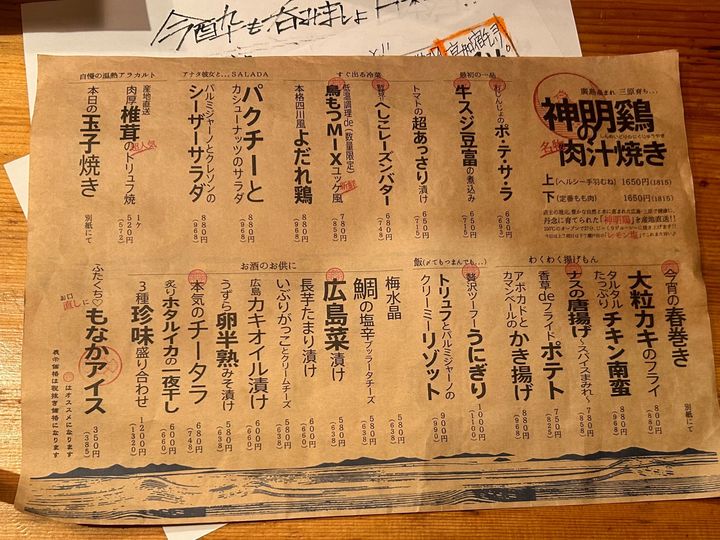 今酔も呑みましょ
廣島産まれ 三原育ち…
神明鶏の肉汁焼き
しんめいどりのにくじゅうやき
名物
上(ヘルシー手羽むね) 1650円(1815)
下(定番もも肉) 1650円(1815)
丹念に育てられた「神明鶏」を産地直送!!
最初の一品
おじんじょのポ・テ・サ・ラ
630円
(693)
牛スジ豆富の煮込み
650円
(715)
すぐ出る冷菜
トマトの超あっさり漬け
650円
(715)
贅沢へしこレーズンバター
680円
(748)
低温調理de(数量限定)
鳥もつMIXユッケ風
780円
(858)
本格四川風
よだれ鶏
880円
アナタ彼女と…SALADA
パクチーと
カシューナッツのサラダ
880円
(968)
パルミジャーノとクレソンの
シーザーサラダ
880円
(968)
自慢の温熱アラカルト
産地直送
肉厚椎茸のトリュフ焼
超人気
1ヶ
520円
(572)
本日の玉子焼き
別紙にて
わくわく揚げもん
今宵の春巻き
別紙にて
大粒カキのフライ
800円
(880)
タルタルたっぷりチキン南蛮
880円
(968)
ナスの唐揚げ~スパイスまみれ~
780円
(858)
香草deフライドポテト
750円
(825)
アボカドとカマンベールのかき揚げ
880円
(968)
飯(〆てもつまんでも…)
贅沢ツーフーうにぎり
1000円
(1100)
トリュフとパルミジャーノの
クリーミーリゾット
900円
(990)
お酒のお供に
梅水晶
580円
(638)
鯛の塩辛クックラータチーズ
580円
(638)
広島菜漬け
580円
(638)
長芋たまり漬け
580円
(638)
いぶりがっことクリームチーズ
580円
(638)
広島カキオイル漬け
600円
(660)
うずら卵半熟みそ漬け
580円
(638)
本気のチータラ
680円
(748)
炙りホタルイカの一夜干し
600円
(660)
3種珍味盛り合わせ
1200円
(1320)
お口直しに
ふたくちのもなかアイス
350円
(385)
はオススメになります
表示価格は税抜き価格になります